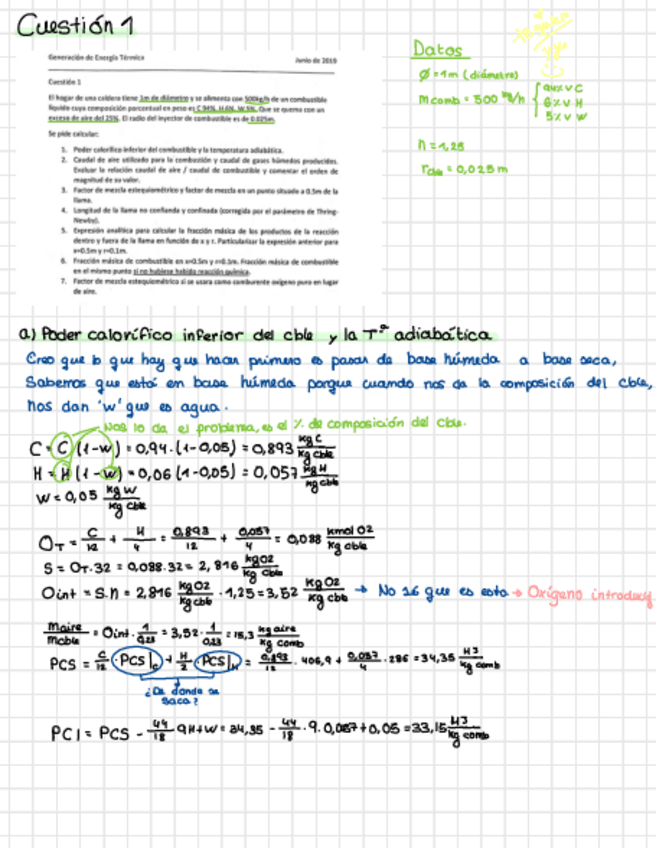 Cuestión 1
Generación de Energía Térmica
Junio de 2019
Cuestión 1
El hogar de una caldera tiene 1m de diámetro y se alimenta con 500kg/h de un combustible
líquido cuya composición porcentual en peso es C 94%, H 6%, W 5%. Que se quema con un
exceso de aire del 25%. El radio del inyector de combustible es de 0.025m.
Se pide calcular:
1. Poder calorífico inferior del combustible y la temperatura adiabática.
2. Caudal de aire utilizado para la combustión y caudal de gases húmedos producidos.
Evaluar la relación caudal de aire / caudal de combustible y comentar el orden de
magnitud de su valor.
3. Factor de mezcla estequiométrico y factor de mezcla en un punto situado a 0.5m de la
llama.
4. Longitud de la llama no confinada y confinada (corregida por el parámetro de Thring-
Newby).
5. Expresión analítica para calcular la fracción másica de los productos de la reacción
dentro y fuera de la llama en función de x y r. Particularizar la expresión anterior para
x=0.5m y r=0.1m.
6. Fracción másica de combustible en x=0.5m y r=0.1m. Fracción másica de combustible
en el mismo punto si no hubiese habido reacción química.
7. Factor de mezcla estequiométrico si se usara como comburente oxígeno puro en lugar
de aire.
Datos
Ø = 1m (diámetro)
m comb = 500 kg/h
94% C
6% H
5% W
n = 1,25
r cble = 0,025 m
a) Poder calorífico inferior del cble y la Tª adiabática
Creo que lo que hay que hacer primero es pasar de base húmeda a base seca,
Sabemos que está en base húmeda porque cuando nos da la composición del cble,
nos dan 'w' que es agua.
Nos lo da el problema, es el % de composición del cble.
C = C (1-w) = 0,94 · (1-0,05) = 0,893 kg C / kg cble
H = H (1-w) = 0,06 (1-0,05) = 0,057 kg H / kg cble
W = 0,05 kg W / kg cble
OT = C/12 + H/4 = 0,893/12 + 0,057/4 = 0,088 kmol O2 / kg cble
S = OT · 32 = 0,088 · 32 = 2,816 kg O2 / kg cble
Oint = S · n = 2,816 kg O2 / kg cble · 1,25 = 3,52 kg O2 / kg cble → No sé que es esto → Oxígeno introducy.
Maire / Mcble = Oint · 1/0,23 = 3,52 · 1/0,23 = 15,3 kg aire / kg comb
PCS = C/12 · PCS|c + H/2 · PCS|H = 0,893/12 · 406,9 + 0,057/4 · 286 = 34,35 MJ / kg comb
¿De donde se
saca?
PCI = PCS - 44/18 · 9H + W = 34,35 - 44/18 · 9 · 0,057 + 0,05 = 33,15 MJ / kg comb